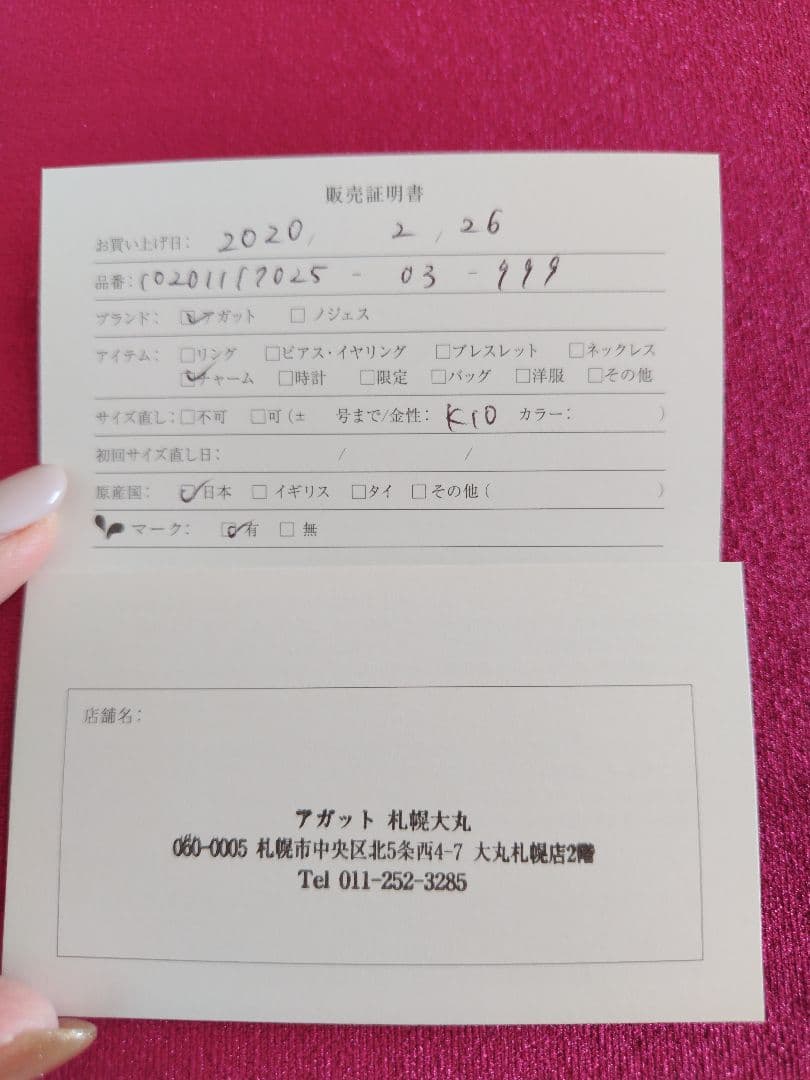 販売証明書
お買い上げ日: 2020/ 2 / 26
品番: 10201117025 - 03 - 999
ブランド: ☑アガット □ノジェス
アイテム: □リング □ピアス・イヤリング □ブレスレット □ネックレス
☑チャーム □時計 □限定 □バッグ □洋服 □その他
サイズ直し: □不可 □可(± 号まで/金性: K10 カラー: )
初回サイズ直し日: / /
原産国: ☑日本 □イギリス □タイ □その他( )
マーク: ☑有 □無
店舗名:
アガット 札幌大丸
060-0005 札幌市中央区北5条西4-7 大丸札幌店2階
Tel 011-252-3285